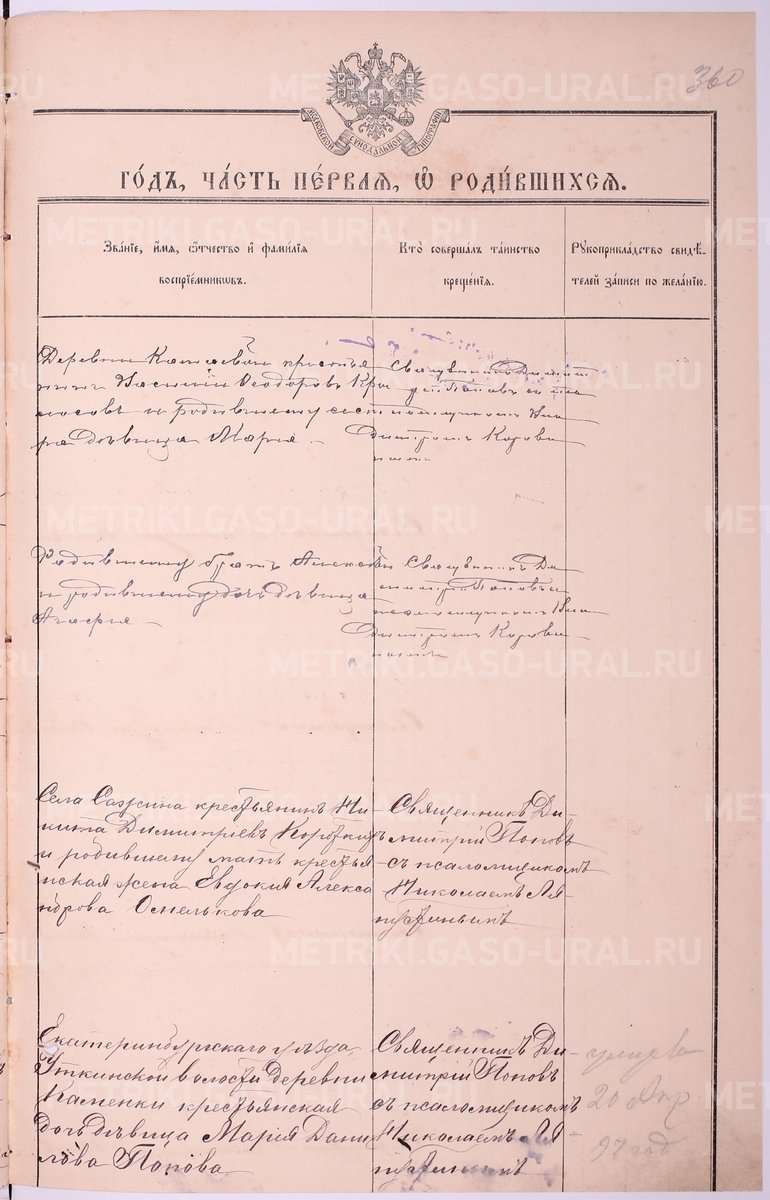 360
МОСКОВСКОЙ СѴНОДАЛЬНОЙ ТИПОГРАФІИ
ГО́ДЪ, ЧА́СТЬ ПЕ́РВАЯ, Ѽ РОДИ́ВШИХСЯ.
Зва́ніе, и́мя, ѻ́тчество и҆ фами́лія
воспріе́мниковъ.
Кто̀ соверша́лъ та́инство
креще́нія.
Рꙋкоприкла́дство свидѣ́-
телей за́писи по жела́нію.
Деревни крестья
нинъ Ѳеодоровъ
и родившему сест
ра дѣвица Марія
Священникъ Димит
рій Поповъ съ пса
ломщикомъ
Димитріемъ Корови
нымъ
Родившему братъ Алексѣй
и родившему дочь дѣвица
Агафія
Священникъ Ди
митрій Поповъ съ
псаломщикомъ
Димитріемъ Корови
нымъ
Села Сажина крестьянинъ Ни
кита Димитріевъ Короткихъ
и родившему мать крестья
нская жена Евдокія Алекса
ндрова Омелькова
Священникъ Ди-
митрій Поповъ
съ псаломщикомъ
Николаемъ Ля-
пустинымъ
Екатеринбургскаго уѣзда
Уткинской волости деревни
Каменки крестьянская
дочь дѣвица Марія Дани
лова Попова
Священникъ Ди-
митрій Поповъ
съ псаломщикомъ
Николаемъ Ля-
пустинымъ
умерла
20 Апр
97 год
METRIKI.GASO-URAL.RU